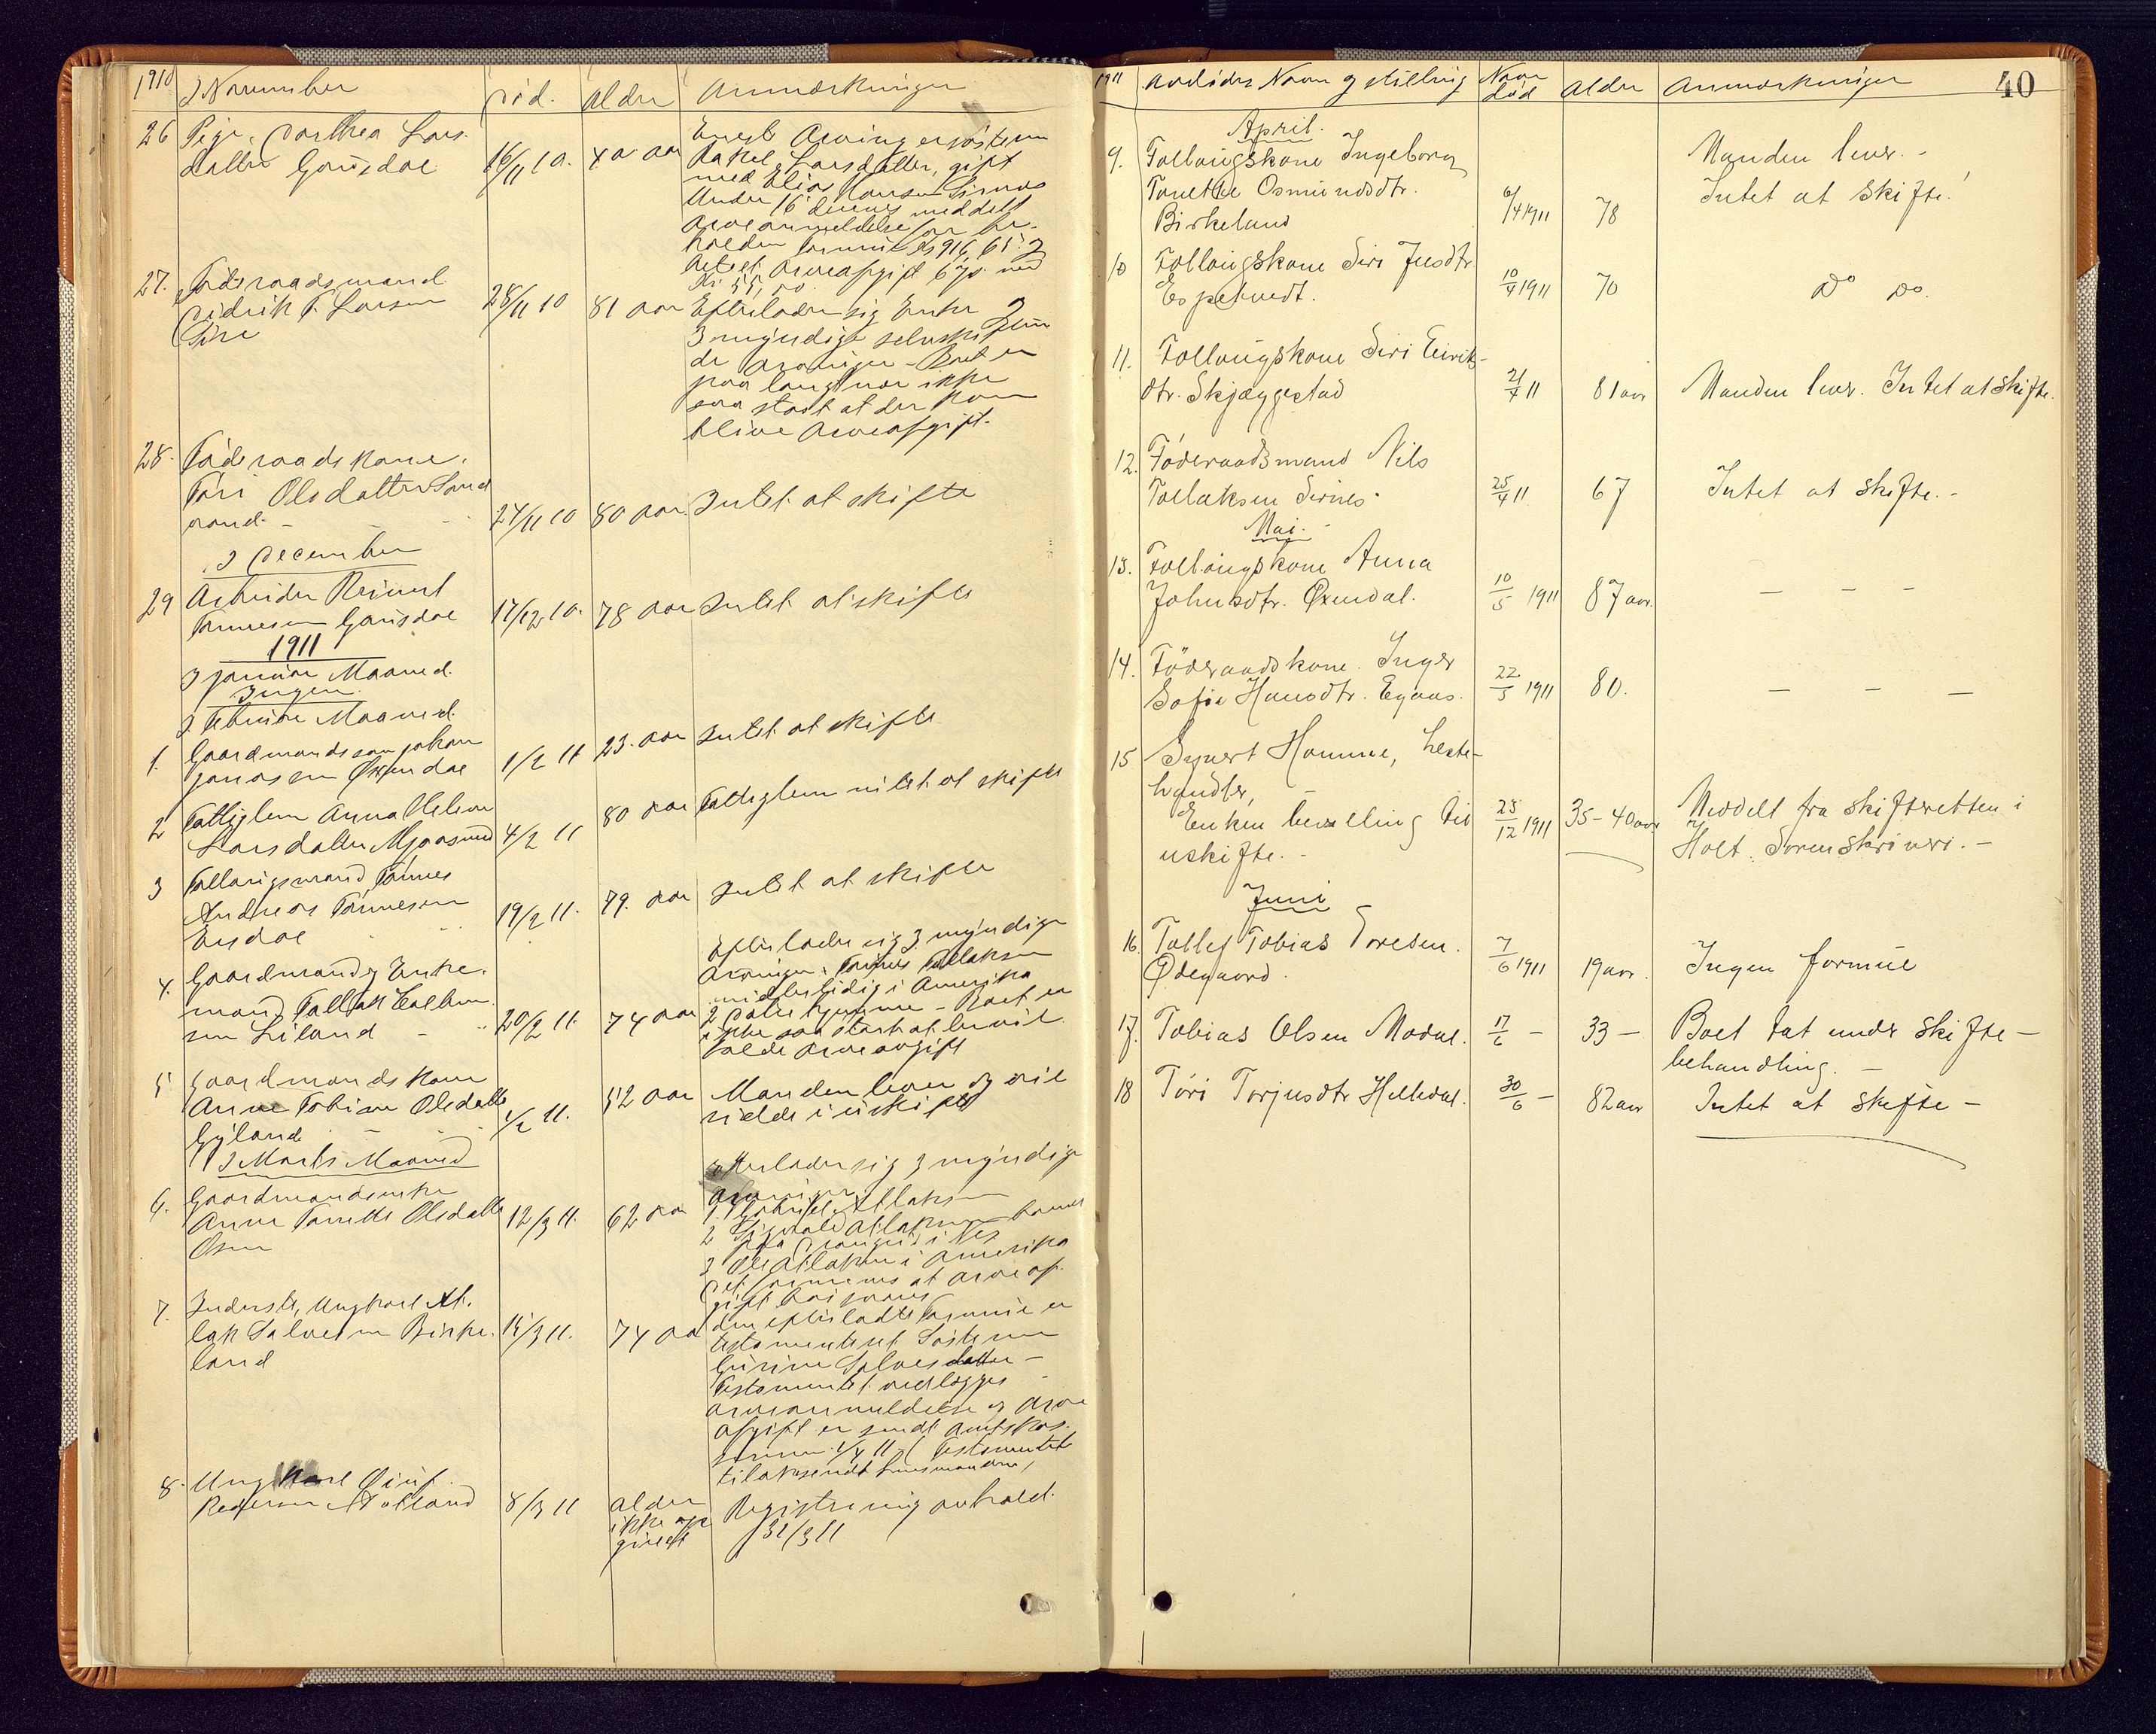 1910 I November Död. Alder Anmærkninger
26 Pige. Dorthea Lars-
datter Gausdal 16/11 10. 40 aar
Eneste Arving er søsteren
Rakel Larsdatter, gift
med Elias Hansen Sirnes
Under 16 dennes meddelt
Arveanmeldelse for be-
holden formue Kr 916,65.
Betalt Arveafgift 6% med
Kr 55,00.
27. Føderaadsmand
Didrik T. Larsen
Sire 28/11 10 81 aar
Efterlader sig Enke &
3 myndige selvskiften
de Arvinger - Boet er
paa langt nær ikke
saa stort at der kan
blive Arveafgift.
28. Föderaadskone.
Töri Olsdatter Sand
rand. - 24/11 10 80 aar. Intet at skifte
I December
29 Arbeider Reinert
Tønnesen Gausdal 17/12 10. 78 aar Intet at skifte
1911
I Januar Maaned.
Ingen
I Februar Maaned.
1. Gaardmandssøn Johan
Jonassen Øxendal 1/2 11 23. aar Intet at skifte
2 Fattiglem Anna Helene
Larsdatter Mjaasund 4/2 11 80 aar Fattiglem intet at skifte
3 Follaugsmand Tönnes
Andreas Tönnesen
Eisdal 19/2 11. 79. aar Intet at skifte
4. Gaardmand og Enke-
mand Tallak
sen Liland - 20/2 11. 74 aar
Efterlader sig 3 myndige
Arvinger. Tönnes Tallaksen
midlertidig i Amerika
2 Døtre hjemme - Boet er
ikke saa stort at det vil
falde Arveavgift
5 Gaardmandskone
Anne Tobine Olsdatter
Gyland 1/2 11. 52 aar Manden lever og vil
sidde i uskifte
I Marts Maaned
6. Gaardmandsenke
Anne Tonette Olsdatter
Osen 12/3 11. 62 aar
Efterlader sig 3 myndige
Arvinger
1. Gabriel Atlaksen
2 Sigvald Atlaksen
paa i Nes
3 Ole Atlaksen i Amerika
Det formenes at Arveaf-
gift
7. Inderst, Ungkarl At-
lak Salvesen Birke-
land 15/3 11. 74 aar
den efterladte Formue er
testamenteret Søsteren
Gurine Salvesdatter -
Testamentet vedlægges
Arveanmeldelse og Arve
afgift er sendt Amtskas-
sereren 1/4 11 Testamentet
tilbakesendt Lensmanden,
8. Ungkarl Oluf
Pedersen Aa 8/3 11 Alder
ikke op
givet Registrering avholdt
31/3 11
1911 Avdødes Navn og stilling Naar död Alder Anmærkninger 40
April.
9. Follaugskone Ingeborg
Tonette Osmundsdtr.
Birkeland 6/4 1911 78 Manden lever. -
Intet at skifte.
10 Follaugskone Siri Jensdtr.
Espetvedt. 10/4 1911 70 Do Do.
11. Follaugskone Siri Eirik-
dtr. Skjæggestad 21/4 11 81 aar Manden lever. Intet at skifte.
12. Föderaadsmand Nils
Tollaksen Sirnes. 25/4 11 67 Intet at skifte. -
Mai.
13. Follaugskone Anna
Johnsdtr. Øxendal. 10/5 1911 87 aar. - - -
14. Föderaadskone. Inger
Sofie Hansdtr. Egaas. 22/5 1911 80. - - -
15 Syvert Homme, heste-
handler, -
Enken bevilling til
uskifte. - 23/12 1911 35-40 aar Meddelt fra Skifteretten i
Holt Sorenskriveri. -
Juni
16. Tollef Tobias Toresen.
Ødegaard. 7/6 1911 19 aar. Ingen formue
17. Tobias Olsen Modal. 17/6 - 33 - Boet tat under Skifte-
behandling. -
18 Töri Torjusdtr Helledal. 30/6 - 82 aar Intet at skifte -